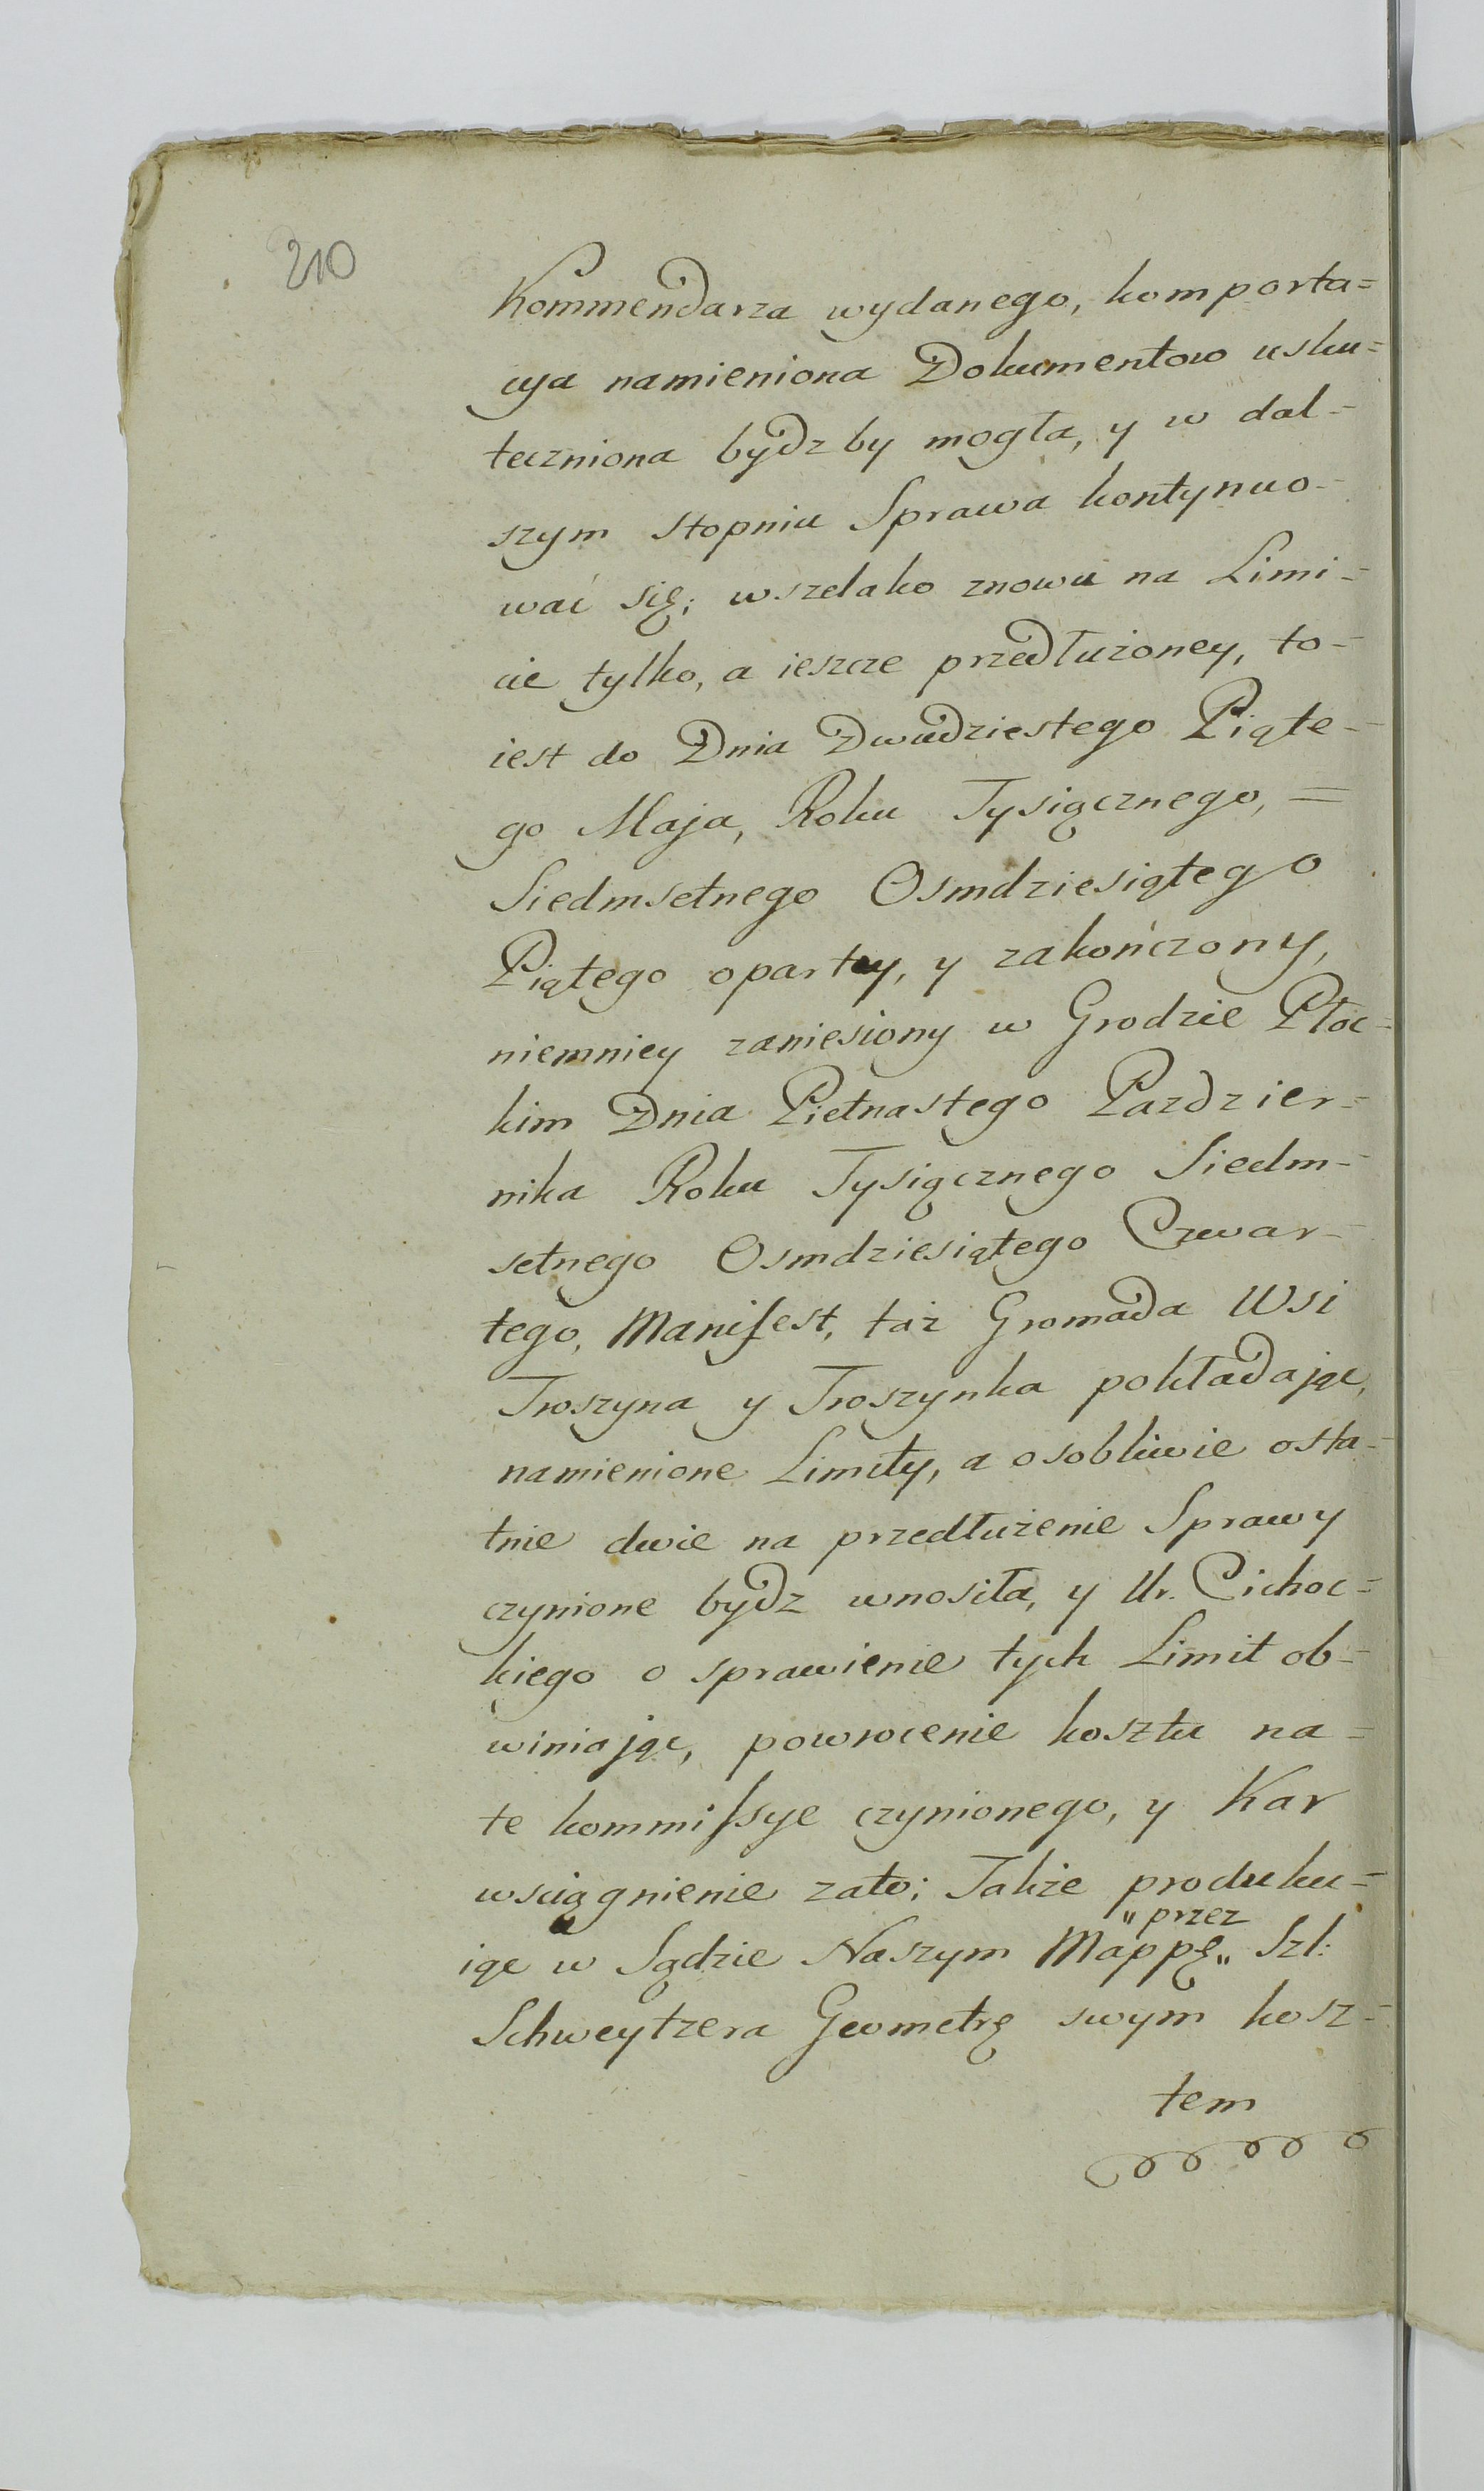 210
Kommendarza wydanego, komporta=
cya namieniona Dokumentow usku=
teczniona bydz by mogła, y w dal=
szym stopniu Sprawa kontynuo-
wać się; wszelako znowu na Limi=
cie tylko, a ieszcze przedłużoney, to-
iest do Dnia Dwudziestego Piąte-
go Maja, Roku Tysiącznego, =
Siedmsetnego Osmdziesiątego
Piątego opartey, y zakończony,
niemniey zaniesiony w Grodzie Płoc=
kim Dnia Pietnastego Pazdzier=
nika Roku Tysiącznego Siedm-
setnego Osmdziesiątego Czwar-
tego, Manifest, taż Gromada Wsi
Troszyna y Troszynka pokładając,
namienione Limity, a osobliwie osta-
tnie dwie na przedłużenie Sprawy
czynione bydz wnosiła, y Ur. Cichoc=
kiego o sprawienie tych Limit ob=
winiając, powrocenie kosztu na=
te kommissye czynionego, y Kar
wsciągnienie zato; Także produku=
"przez
iąc w Sądzie Naszym Mappę" Szl:
Schweytzera Geometrę swym kosz=
tem